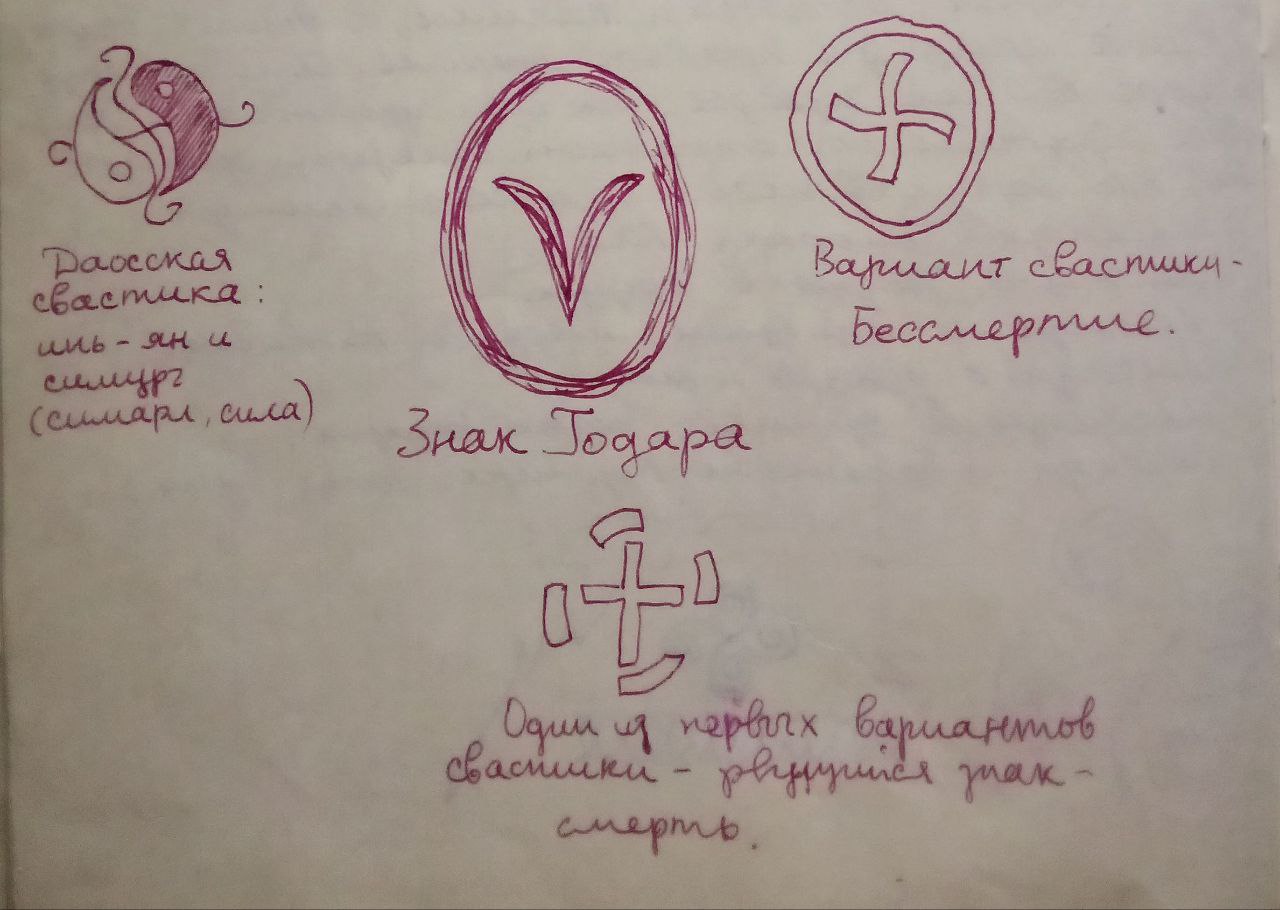 Даосская
свастика:
инь-ян и
симург
(симаргл, сила)
Знак Годара
Вариант свастики-
Бессмертие.
Один из первых вариантов
свастики - рвущийся знак-
смерть.